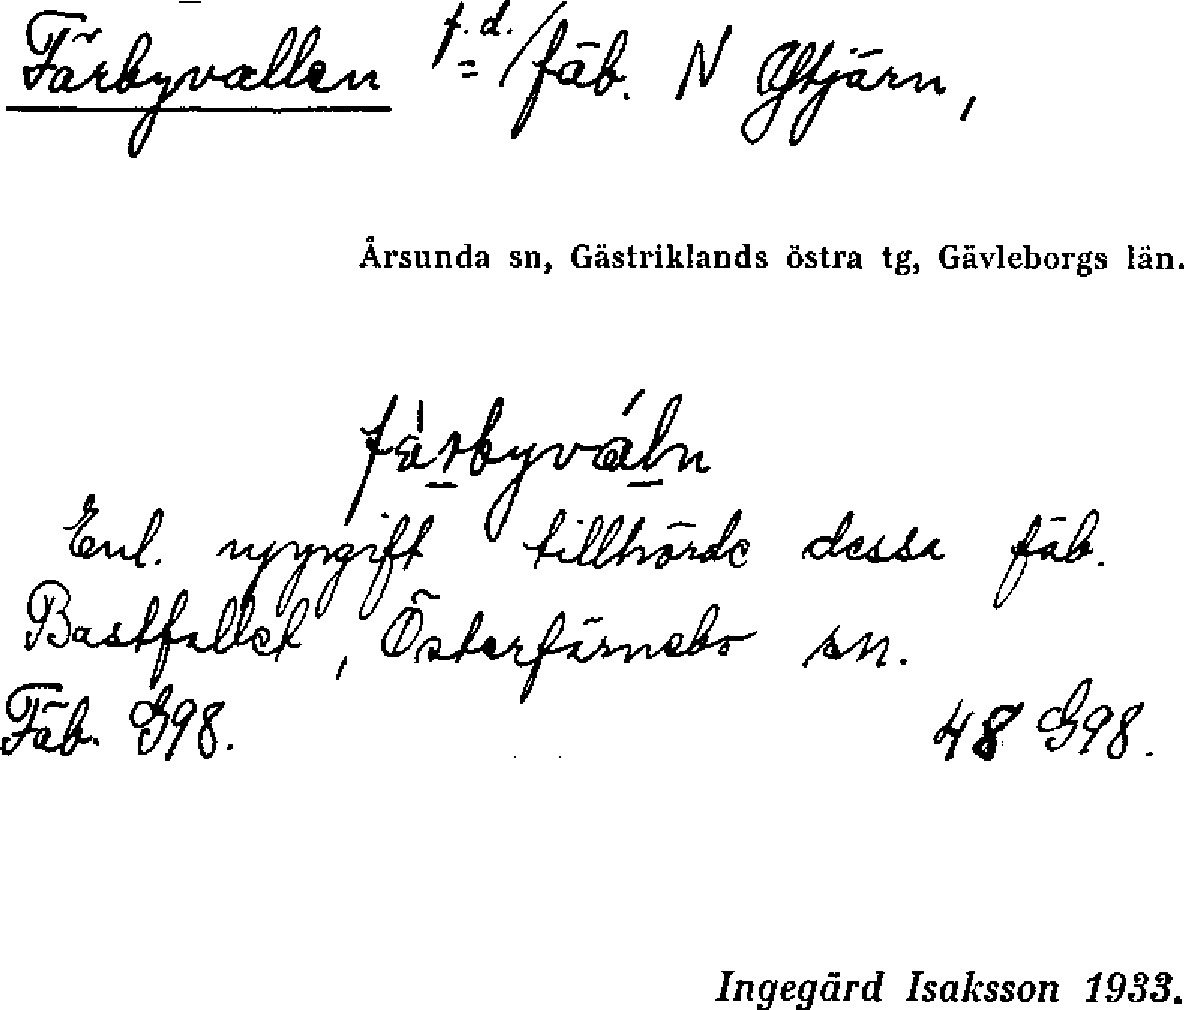 Färbyvallen f.d. fäb. N Ytjärn,
Årsunda sn, Gästriklands östra tg, Gävleborgs län.
färbyváln
Enl. uppgift tillhörde dessa fäb.
Bastfallet, Österfärnebo sn.
Fäb. G98. 48 G98.
Ingegärd Isaksson 1933.